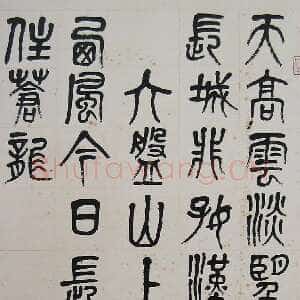 天高雲淡望
長城非好漢
六盤山上
西風今日長
住蒼龍
shufawang.cn